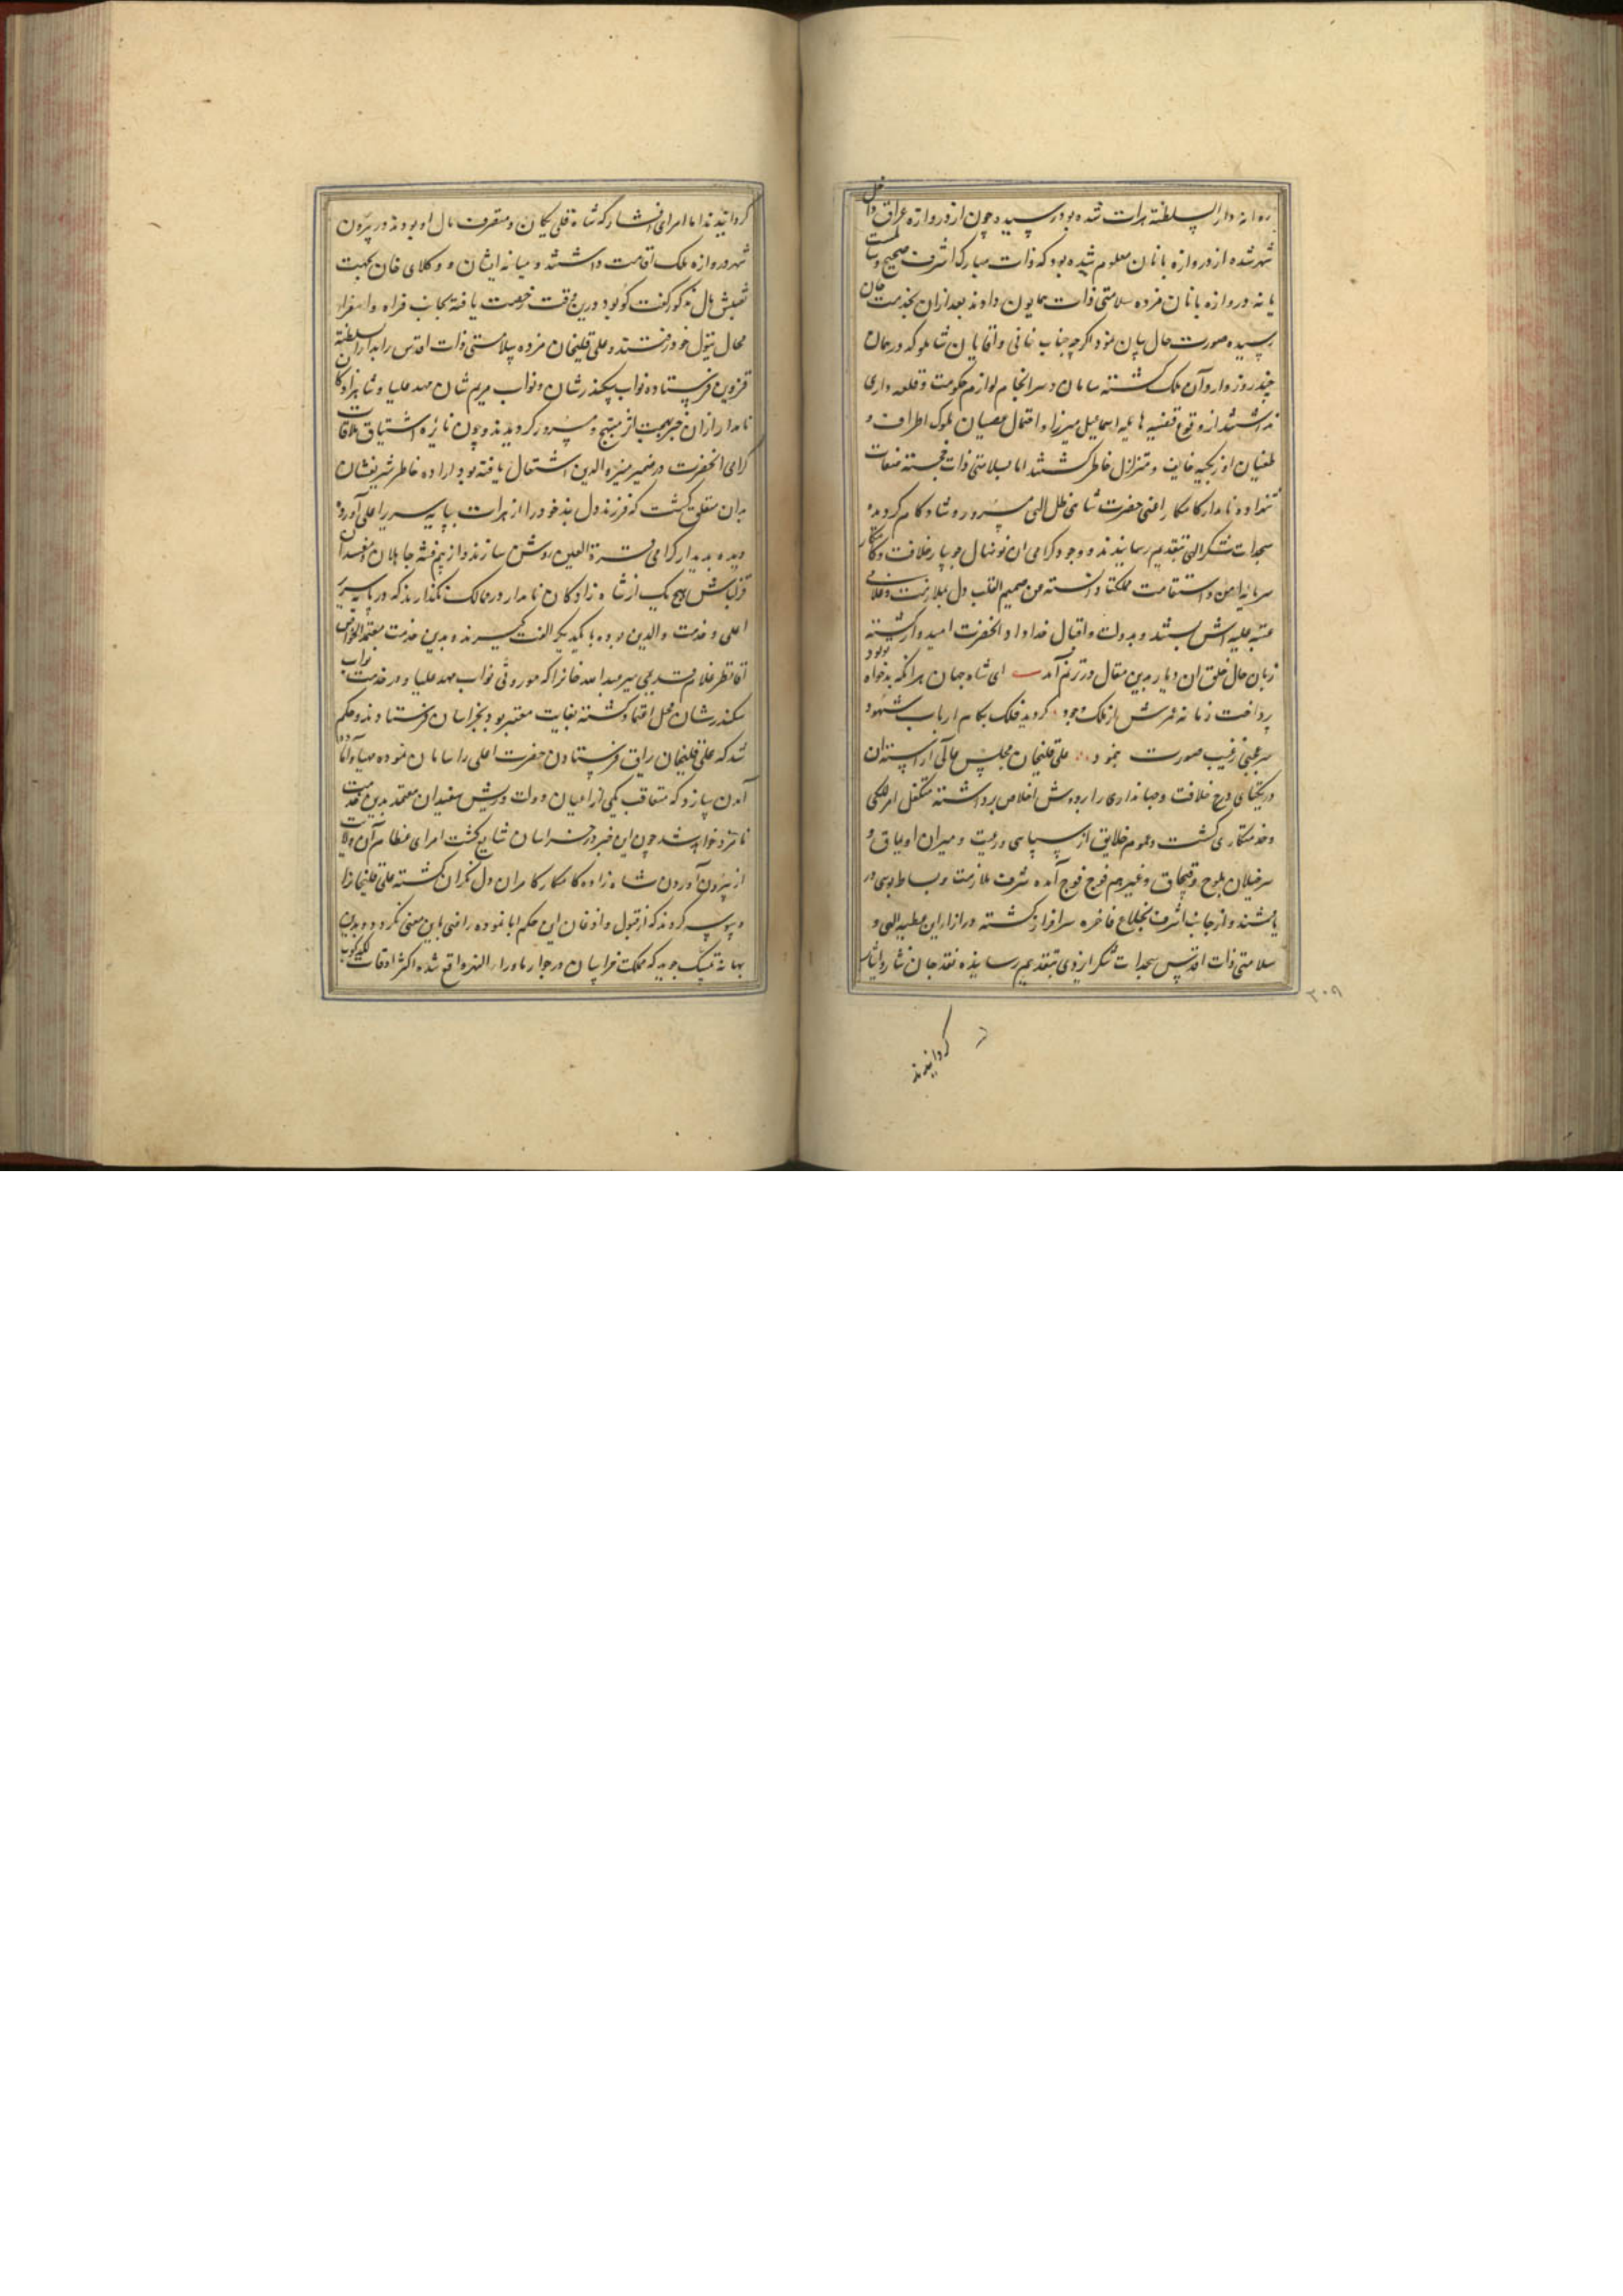 روانه دار السلطنه هرات شده بود رسیده چون از دروازه عراق داخل
شهر شده از دروازه بانان معلوم شده بود که ذات مبارک اشرف صحیح و سالمست
یا نه دروازه بانان مژده سلامتی ذات همایون دادند بعد از آن بخدمت خان
رسیده صورت حال بیان نمود اگرچه جناب خانی و آقایان شاملو که در همان
چند روز وارد آن ملک گشته سامان و سرانجام لوازم حکومت و قلعه داری
نداشتند از وقوع قضیه هایله اسماعیل میرزا و احتمال عصیان ملوک اطراف و
طغیان اوزبکیه خایف و متزلزل خاطر گشتند اما بسلامتی ذات خجسته صفات
شهزاده نامدار کامکار اعنی حضرت شاهی ظل الهی مسرور و شادکام گردیده
سجدات شکر الهی بتقدیم رسانیدند و وجود گرامی آن نونهال جویبار خلافت و کامکاری
سرمایه امن و استقامت مملکت دانسته من صمیم القلب دل بملازمت و غلامی
عتبه علیه اش بستند و بدولت و اقبال خداداد آنحضرت امیدوار گشته
زبان حال خلق آن دیار بدین مقال در ترنم آمد ای شاه جهان هر آنکه بدخواه تو بود
پرداخت زمانه عرش از ملک وجود گردید فلک بکام ارباب شهود
سر غیبی صورت بنمود علیقلیخان مجلس عالی آراسته آن
در یکتای درج خلافت و جهانداری را بر دوش اخلاص برداشته متکفل امر للگی
و خدمتکاری گشت و عموم خلایق از سپاهی و رعیت و میران اویماق و
سرخیلان بلوچ و قبچاق و غیرهم فوج فوج آمده شرف ملازمت و بساط بوسی در
یافتند و از جانب اشرف بخلاع فاخره سرافراز گشته در ازاء این عطیه الهی و
سلامتی ذات اقدس سجدات شکر ایزدی بتقدیم رسانیده نقد جان نثار و ایثار
۳۰۹
گردانیدند
گردانیدند اما امرای افشار که شاه قلی یکان و متصرف مال او بودند در بیرون
شهر دروازه ملک اقامت داشتند و میانه ایشان و وکلای خان بجهت
تفتیش مال مذکور گفت گو بود درین وقت رخصت یافته بجانب فراه و اسفزار
محال تیول خود رفتند و علی قلیخان مژده سلامتی ذات اقدس را بدار السلطنه
قزوین فرستاده نواب سکندر شان و نواب مریم شان مهد علیا و شاهزادگان
نامدار از آن خبر بهجت اثر مبتهج و مسرور گردیدند و چون نایره اشتیاق ملاقات
گرامی آنحضرت در ضمیر منیر والدین اشتعال یافته بود اراده خاطر شریفشان
بدان متعلق گشت که فرزند دلبند خود را از هرات بپایه سریر اعلی آورده
دیده بدیدار گرامی قرة العین روشن سازند و از بیم فتنه جاهلان و مفسدان
قزلباش هیچ یک از شاه زادگان نامدار در ممالک نگذارند که در پایه سریر
اعلی و خدمت والدین بوده بایکدیگر الفت گیرند و بدین خدمت معتمد الخواص
آقا نظر غلام قدیمی میر عبدالله خان را که موروثی نواب مهد علیا و در خدمت نواب
سکندر شان محل اعتماد گشته بغایت معتبر بود بخراسان فرستادند و حکم
شد که علی قلیخان یراق فرستادن حضرت اعلی را سامان نموده مهیا و آماده
آمدن سازد که متعاقب یکی از اعیان دولت و ریش سفیدان معتمد بدین خدمت
نامزد خواهد شد چون این خبر در خراسان شایع گشت امرای عظام آن ولایت
از بیرون آوردن شاه زاده کامکار کامران دل نگران گشته علی قلیخان را
وسوسه کردند که از قبول و اذعان این حکم ابا نموده راضی باین معنی نگردد و بدین
بهانه تمسک جوید که مملکت خراسان در جوار ماوراء النهر واقع شده اکثر اوقات لگدکوب